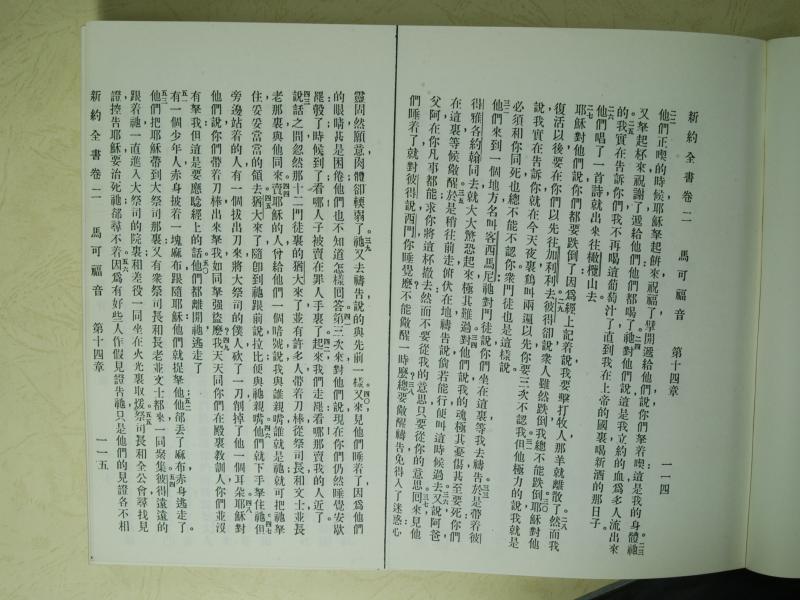 新約全書卷二　馬可福音　第十四章　一一四
他們正喫的時候耶穌拏起餅來祝福了擘開遞給他們說你們拏着喫這是我的身體祂
又拏起杯來祝謝了遞給他們他們都喝了祂對他們說這是我立約的血爲多人流出來
的我實在告訴你們我不再喝這葡萄汁了直到我在上帝的國裏喝新酒的那日子
他們唱了一首詩就出來往橄欖山去
耶穌對他們說你們都要跌倒了因爲經上記着說我要擊打牧人那羊就離散了然而我
復活以後要在你們以先往加利利去彼得卻說衆人雖然跌倒我總不能跌倒耶穌對他
說我實在告訴你就在今天夜裏鷄叫兩遍以先你要三次不認我但他極力的說我就是
必須和你同死也總不能不認你衆門徒也是這樣說
他們來到一個地方名叫客西馬尼祂對門徒說你們坐在這裏等我去禱告於是帶着彼
得雅各約翰同去就大大驚恐起來極其難過對他們說我的魂極其憂傷甚至要死你們
在這裏等候儆醒於是稍往前走俯伏在地禱告說倘若能行便叫這時候過去又說阿爸
父阿在你凡事都能求你將這杯撤去然而不要從我的意思只要從你的意思回來見他
們睡着了就對彼得說西門你睡覺麽不能儆醒一時麽總要儆醒禱告免得入了迷惑心
靈固然願意肉體卻輭弱了祂又去禱告說的與先前一樣又來見他們睡着了因爲他們
的眼睛甚是困倦他們也不知道怎樣回答第三次來對他們說現在你們仍然睡覺安歇
罷彀了時候到了看哪人子被賣在罪人手裏了起來我們走罷看哪那賣我的人近了
說話之間忽然那十二門徒裏的猶大來了並有許多人帶着刀棒從祭司長和文士並長
老那裏與他同來賣耶穌的人曾給他們一個暗號說我與誰親嘴誰就是祂就可把祂拏
住妥妥當當的領去猶大來了隨卽到祂跟前說拉比便與祂親嘴他們就下手拏住祂但
旁邊站着的人有一個拔出刀來將大祭司的僕人砍了一刀削掉了他一個耳朵耶穌對
他們說你們帶着刀棒出來拏我如同拏強盜麽我天天同你們在殿裏教訓人你們並沒
有拏我但這是要應驗經上的話他們都離開祂逃走了
有一個少年人赤身披着一塊麻布跟隨耶穌他們就捉拏他他卻丟了麻布赤身逃走了
他們把耶穌帶到大祭司那裏又有衆祭司長和長老並文士都來一同聚集彼得遠遠的
跟着祂一直進入大祭司的院裏和差役一同坐在火光裏取煖祭司長和全公會尋找見
證控告耶穌要治死祂卻尋不着因爲有好些人作假見證告祂只是他們的見證各不相
新約全書卷二　馬可福音　第十四章　一一五